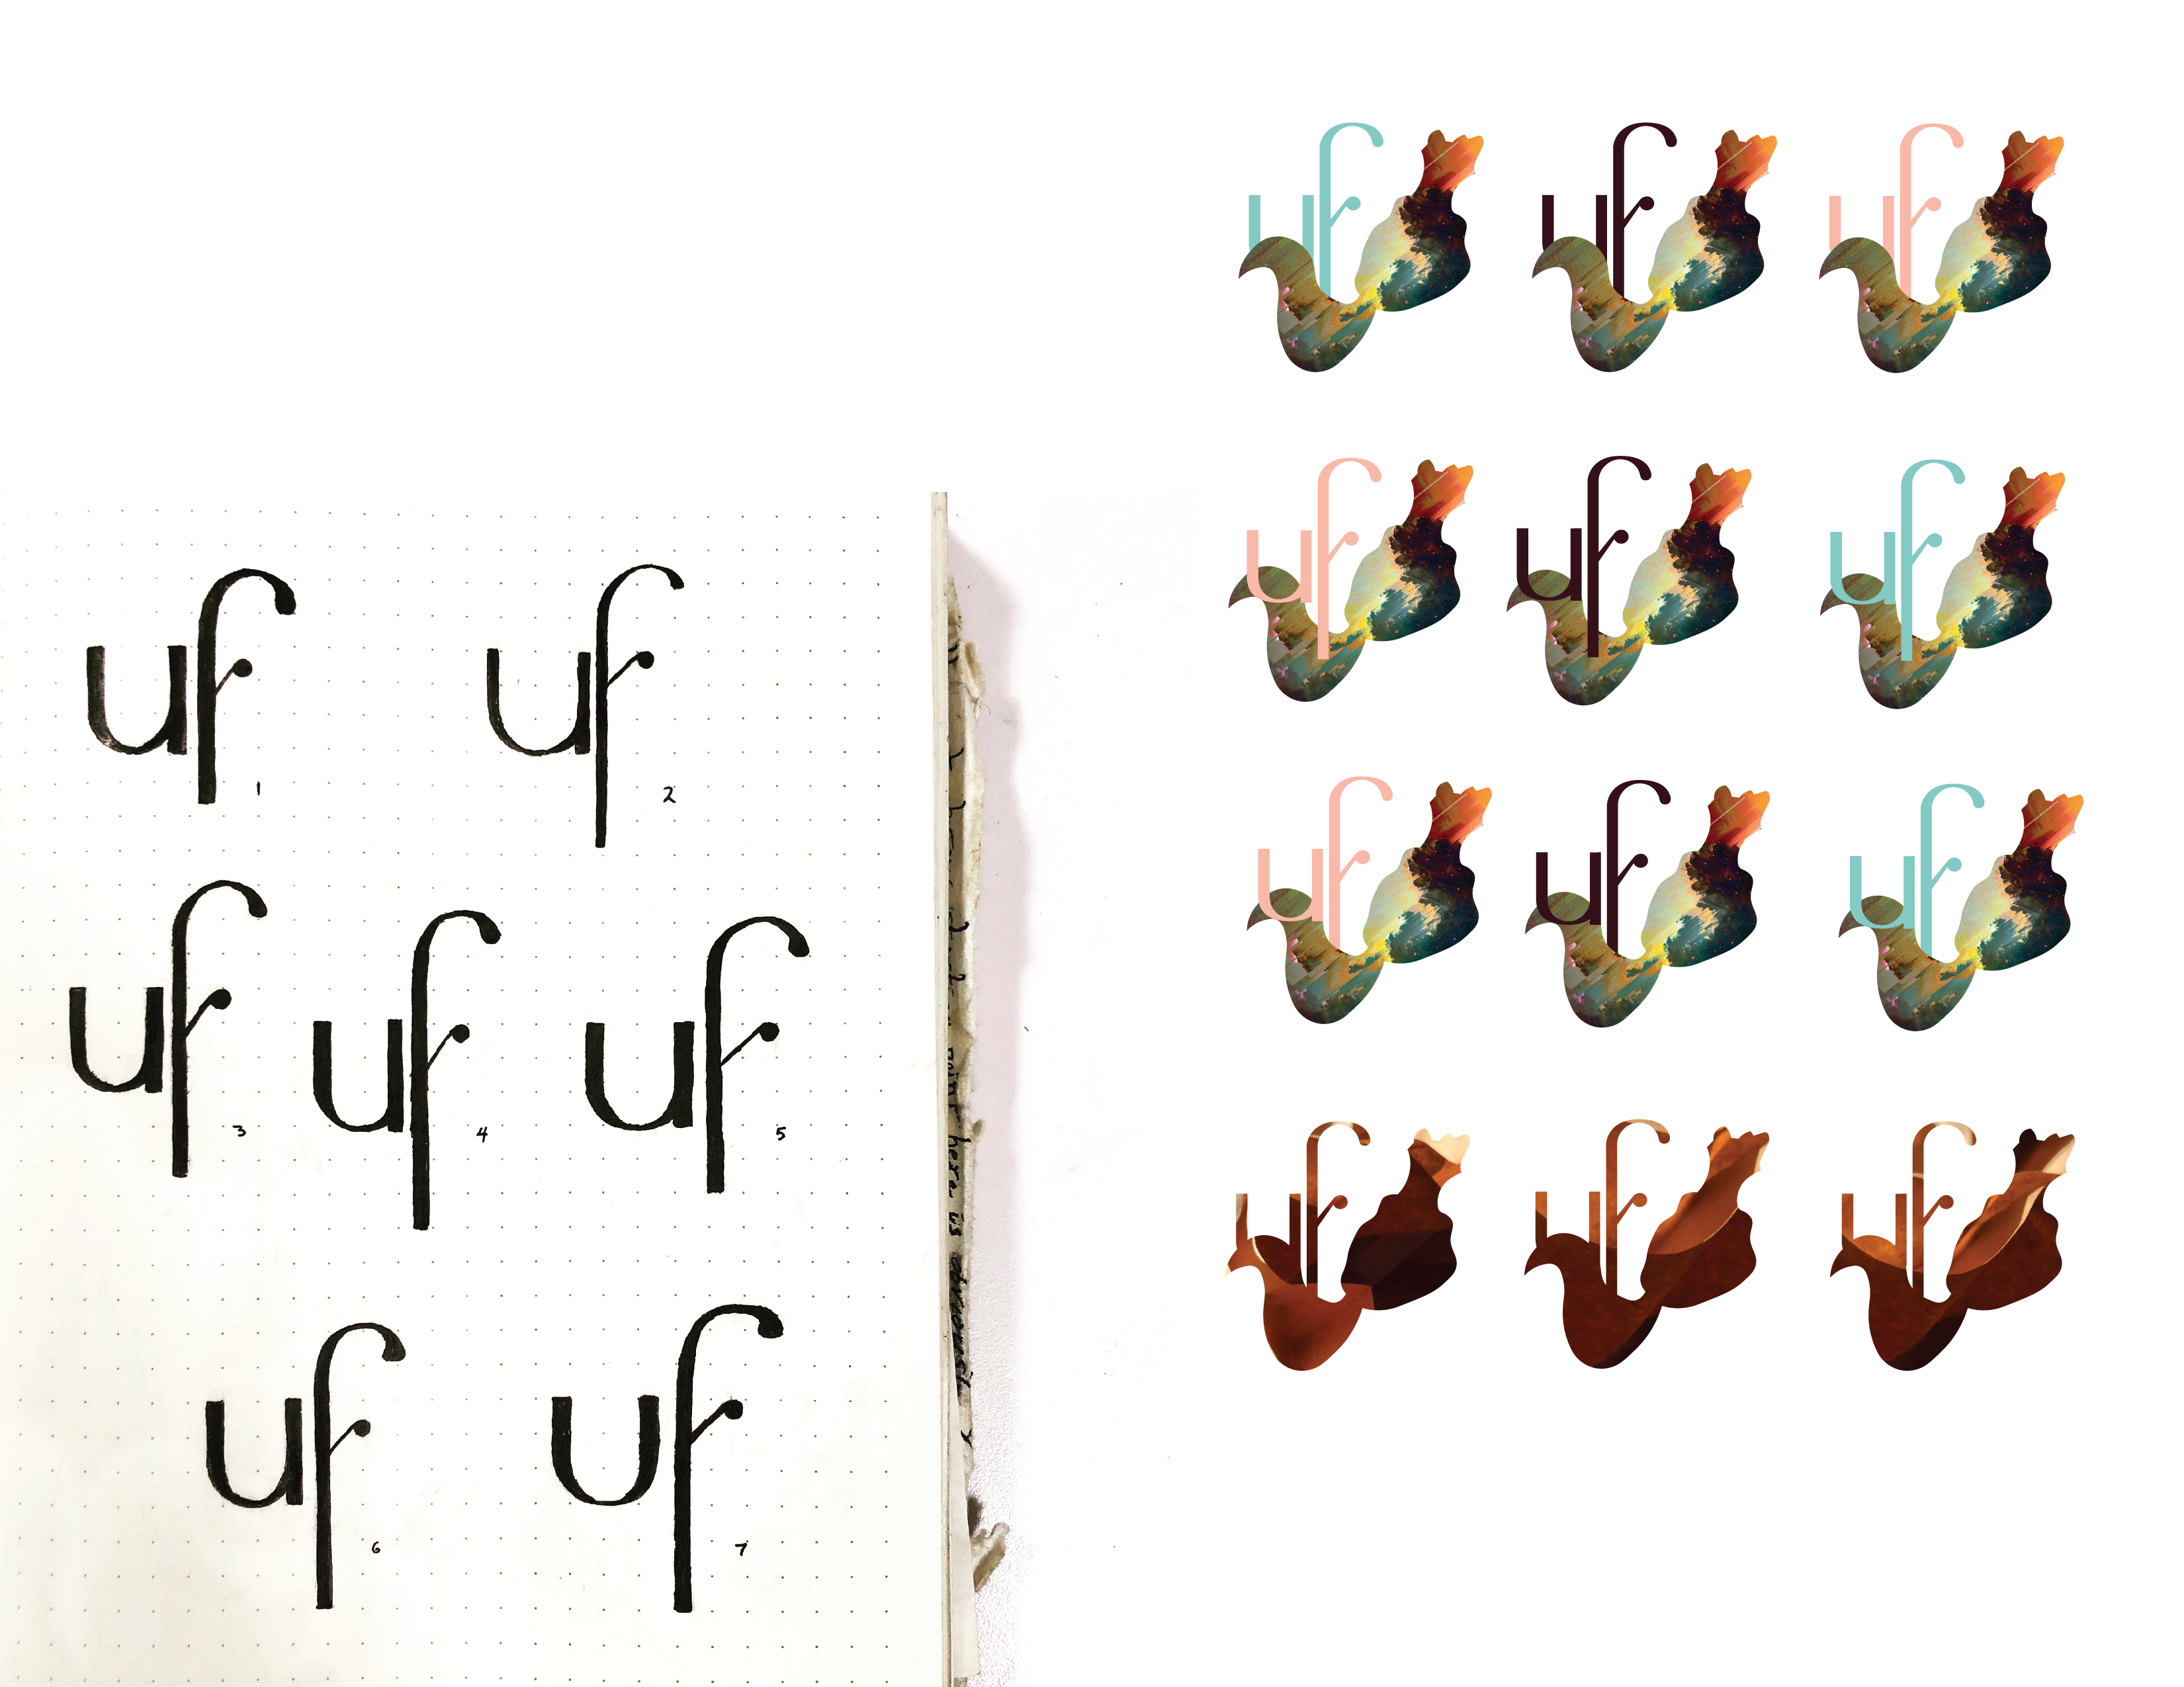 uf
1
uf
2
uf
3
uf
4
uf
5
uf
6
uf
7
point here is
uf uf uf
uf uf uf
uf uf uf
uf uf uf